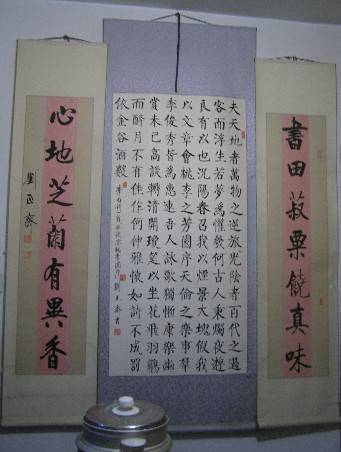 書田菽粟饒真味
夫天地者萬物之逆旅光陰者百代之過
客而浮生若夢為懽幾何古人秉燭夜遊
良有以也況陽春召我以煙景大塊假我
以文章會桃李之芳園序天倫之樂事羣
季俊秀皆為惠連吾人詠歌獨慚康樂幽
賞未已高談轉清開瓊筵以坐花飛羽觴
而醉月不有佳作何伸雅懷如詩不成罰
依金谷酒數
心地芝蘭有異香